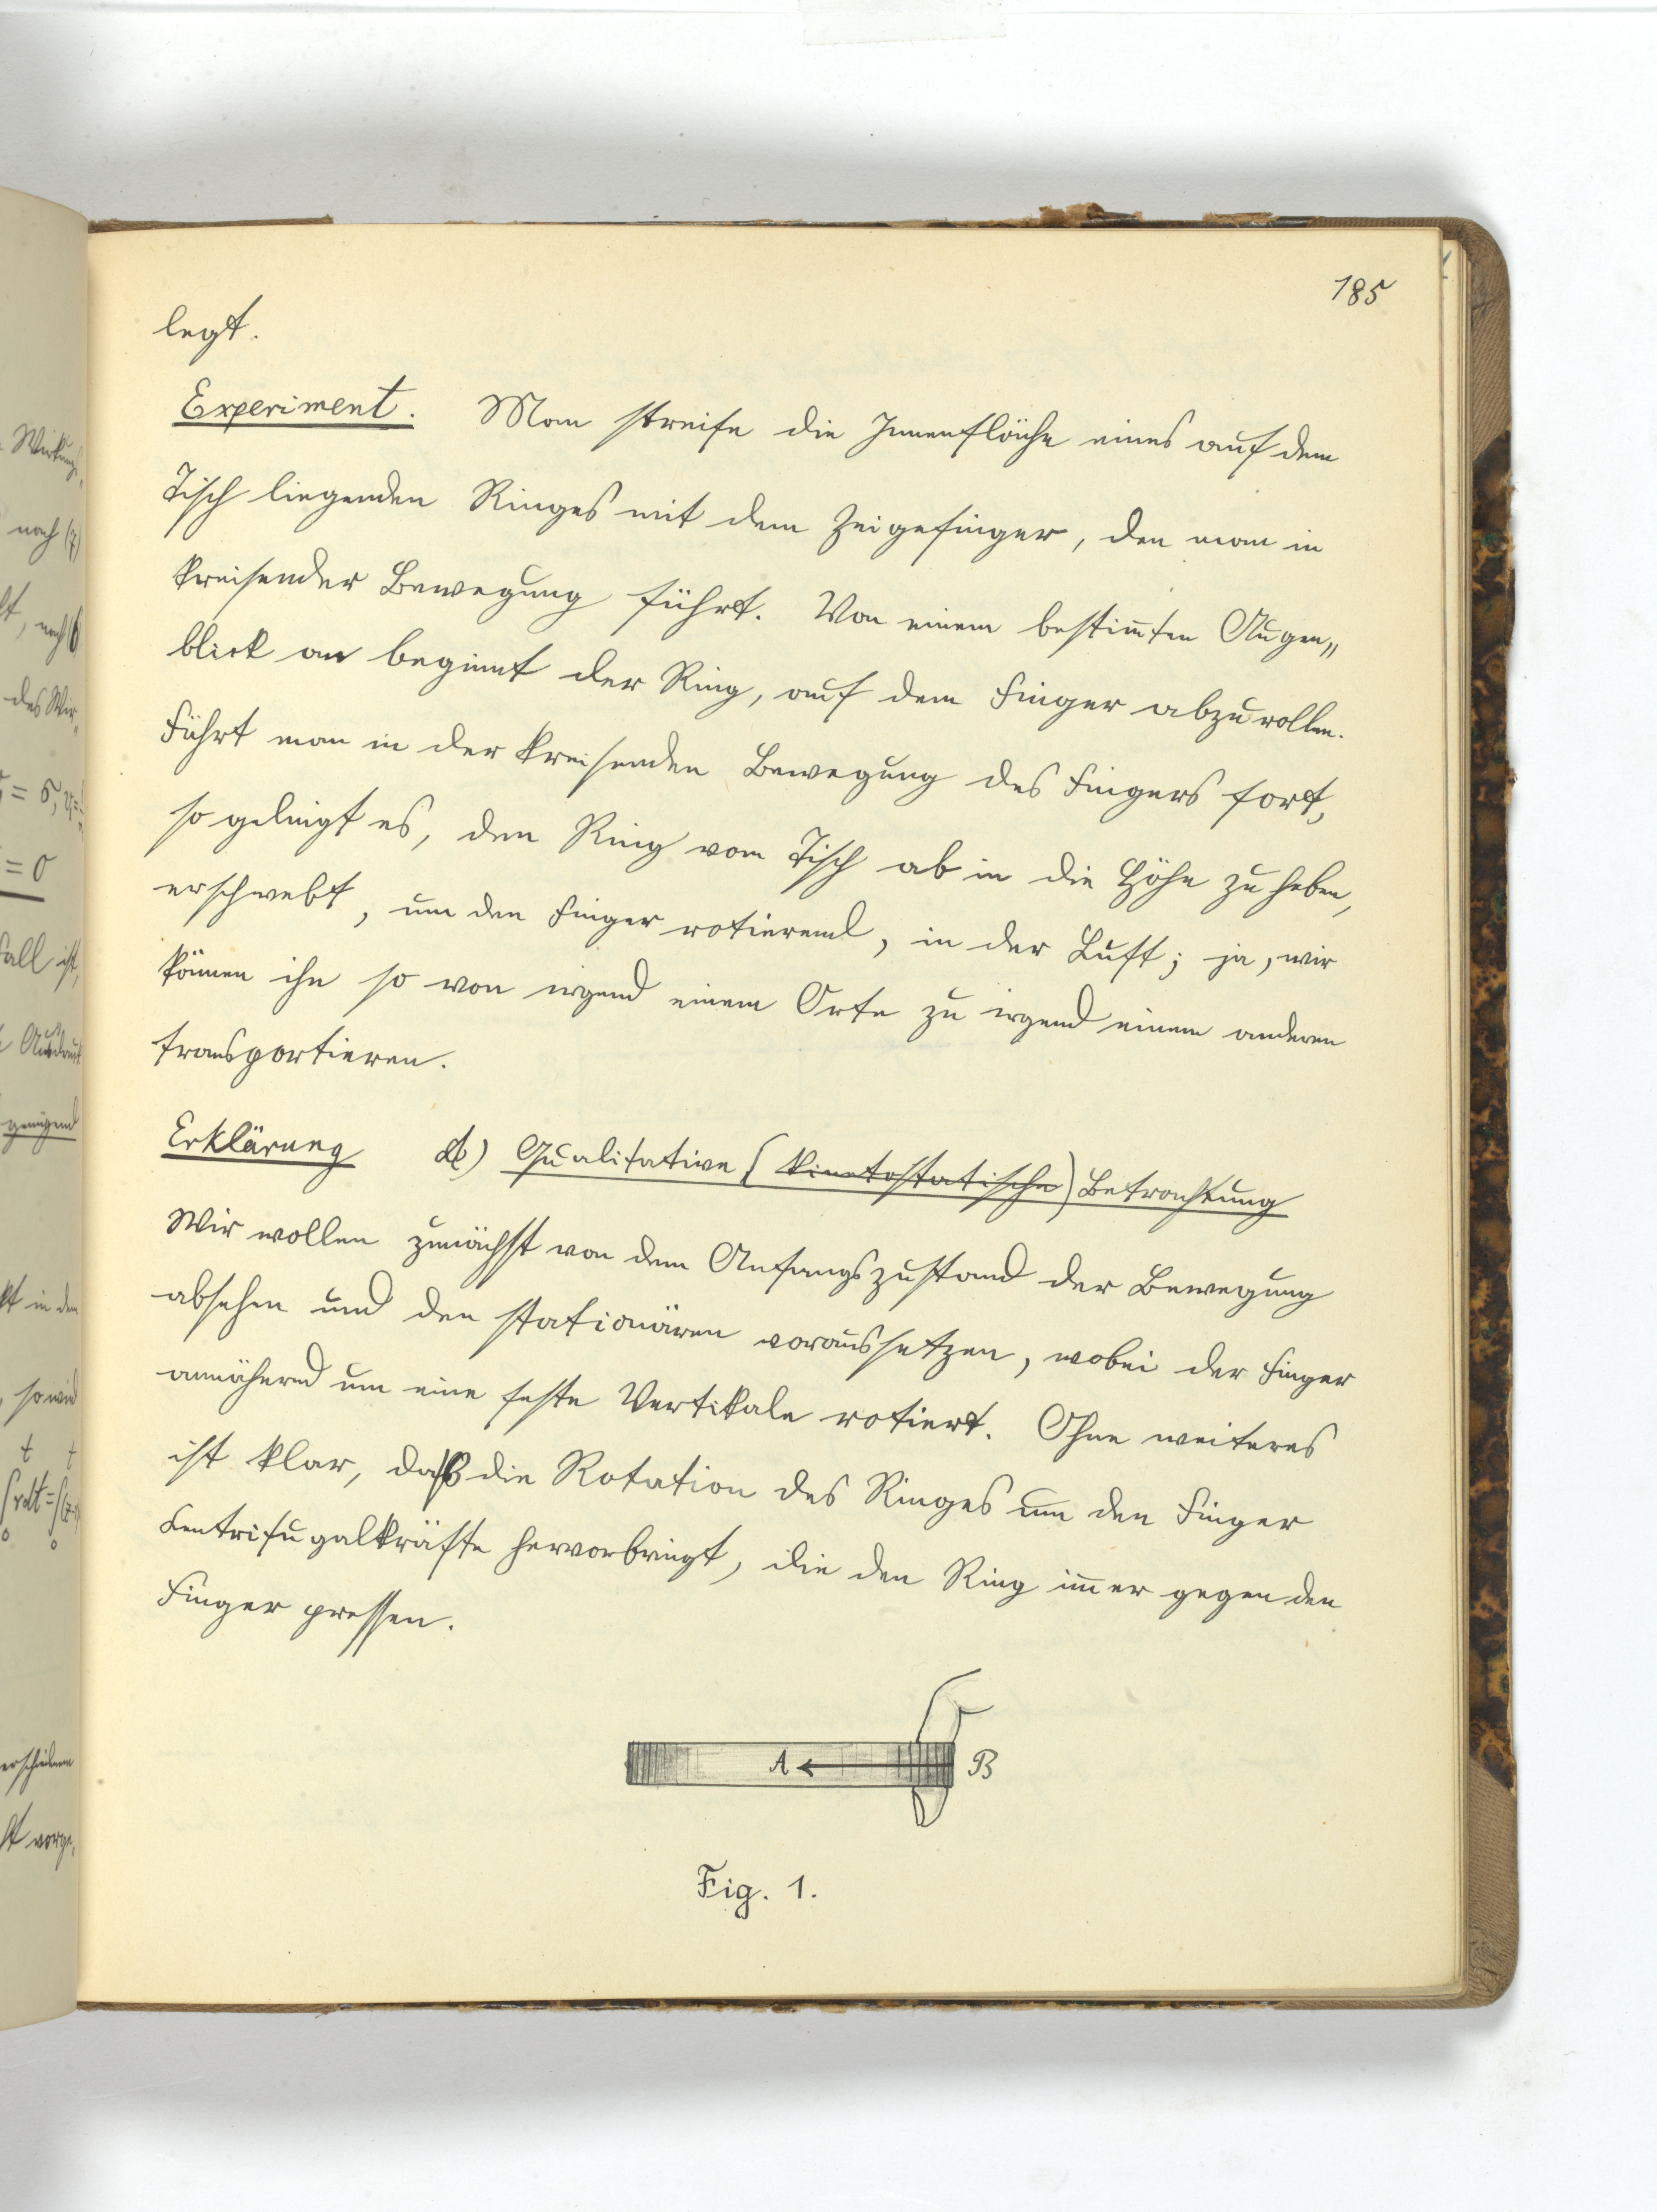 185
legt.
Experiment. Man streife die Innenfläche eines auf dem
Tisch liegenden Ringes mit dem Zeigefinger, den man in
kreisender Bewegung führt. Von einem bestim̄ten Augen„
blick an beginnt der Ring, auf dem Finger abzurollen.
Führt man in der kreisenden Bewegung des Fingers fort,
so gelingt es, den Ring vom Tisch ab in die Höhe zu heben,
er schwebt, um den Finger rotierend, in der Luft; ja, wir
können ihn so von irgend einem Orte zu irgend einem anderen
transportieren.
Erklärung Qualitative (kinetostatische) Betrachtung
Wir wollen zunächst von dem Anfangszustand der Bewegung
absehen und den stationären voraussetzen, wobei der Finger
annähernd um eine feste Vertikale rotiert. Ohne weiteres
ist klar, daß die Rotation des Ringes um den Finger
Centrifugalkräfte hervorbringt, die den Ring im̄er gegen den
Finger pressen.
A B
Fig. 1.
Wirkungs
nach (7)
nach
des Wir„
= 0
fall ist,
genügend
kt in den
, so wird
t t
∫rdt=∫
0 0